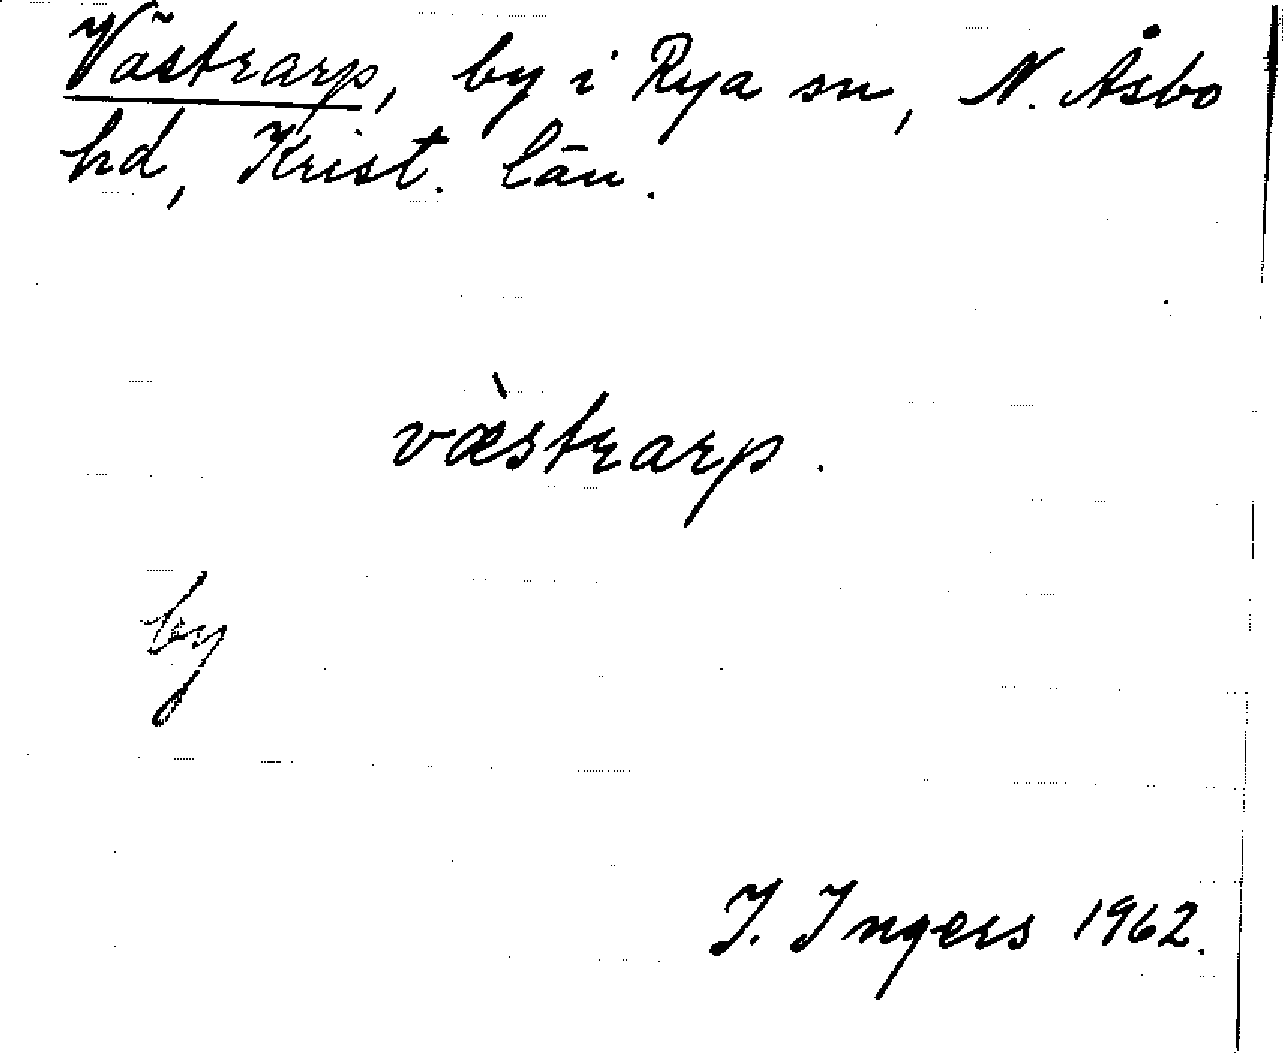 Västrarp, by i Rya sn, N. Åsbo
hd, Krist. län.
væ̀strarp.
by
I. Ingers 1962.